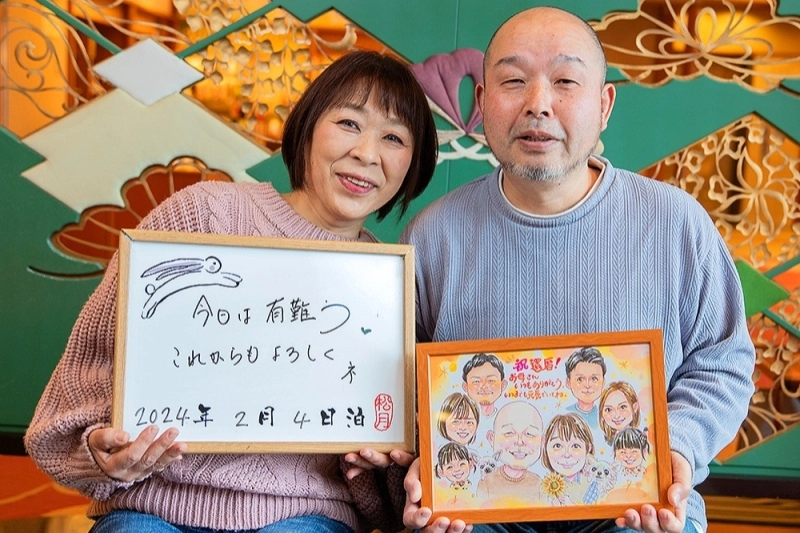 今日は有難う
これからもよろしく
ネ
2024年 2月 4日泊
松月
祝還暦!
お母さん
いつもありがとう
いつまでも元気でいてね。